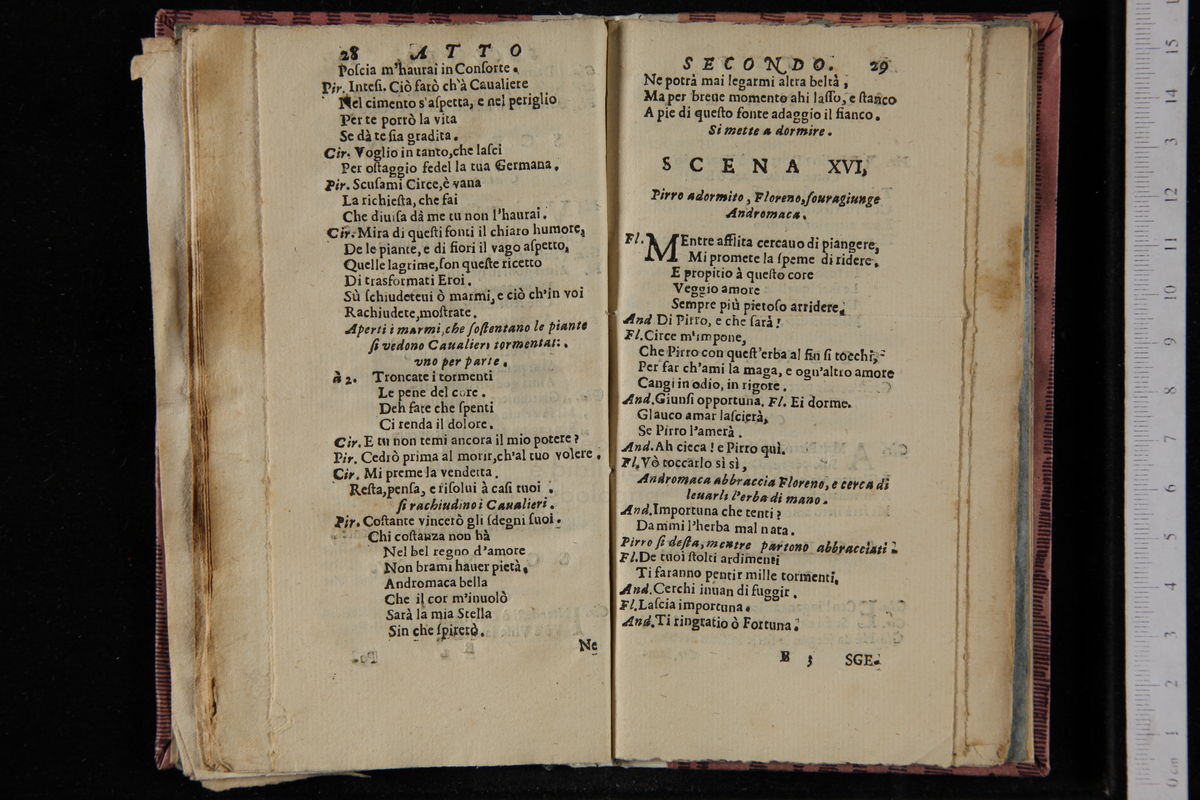 28 ATTO
Poſcia m'haurai in Conſorte.
Pir. Inteſi. Ciò farò ch'à Caualiere
Nel cimento s'aſpetta, e nel periglio
Per te porrò la vita
Se dà te ſia gradita.
Cir. Voglio in tanto, che laſci
Per oſtaggio fedel la tua Germana.
Pir. Scuſami Circe, è vana
La richieſta, che fai
Che diuiſa dà me tu non l'haurai.
Cir. Mira di queſti fonti il chiaro humore,
De le piante, e di fiori il vago aſpetto,
Quelle lagrime, ſon queſte ricetto
Di trasformati Eroi.
Sù ſchiudeteui ò marmi, e ciò ch'in voi
Rachiudete, moſtrate.
Aperti i marmi, che ſoſtentano le piante
ſi vedono Caualieri tormentati.
vno per parte.
à 2. Troncate i tormenti
Le pene del core.
Deh fate che ſpenti
Ci renda il dolore.
Cir. E tu non temi ancora il mio potere?
Pir. Cedrò prima al morir, ch'al tuo volere.
Cir. Mi preme la vendetta.
Reſta, penſa, e riſolui à caſi tuoi.
ſi rachiudino i Caualieri.
Pir. Coſtante vincerò gli ſdegni ſuoi.
Chi coſtanza non hà
Nel bel regno d'amore
Non brami hauer pietà.
Andromaca bella
Che il cor m'inuolò
Sarà la mia Stella
Sin che ſpirerò.
Ne
SECONDO. 29
Ne potrà mai legarmi altra beltà;
Ma per breue momento ahi laſſo, e ſtanco
A pie di queſto fonte adaggio il fianco.
Si mette a dormire.
SCENA XVI,
Pirro adormito, Floreno, ſouragiunge
Andromaca.
Fl. MEntre afflita cercauo di piangere,
Mi promete la ſpeme di ridere.
E propitio à queſto core
Veggio amore
Sempre più pietoſo arridere.
And Di Pirro, e che ſarà!
Fl. Circe m'impone,
Che Pirro con queſt'erba al fin ſi tocchi;
Per far ch'ami la maga, e ogn'altro amore
Cangi in odio, in rigore.
And. Giunſi opportuna. Fl. Ei dorme.
Glauco amar laſcierà,
Se Pirro l'amerà.
And. Ah cieca! e Pirro quì.
Fl. Vò toccarlo sì sì,
Andromaca abbraccia Floreno, e cerca di
leuarli l'erba di mano.
And. Importuna che tenti?
Dammi l'herba mal nata.
Pirro ſi deſta, mentre partono abbracciati.
Fl. De tuoi ſtolti ardimenti
Ti faranno pentir mille tormenti,
And. Cerchi inuan di fuggir.
Fl. Laſcia importuna.
And. Ti ringratio ò Fortuna.
B 3 SCE-